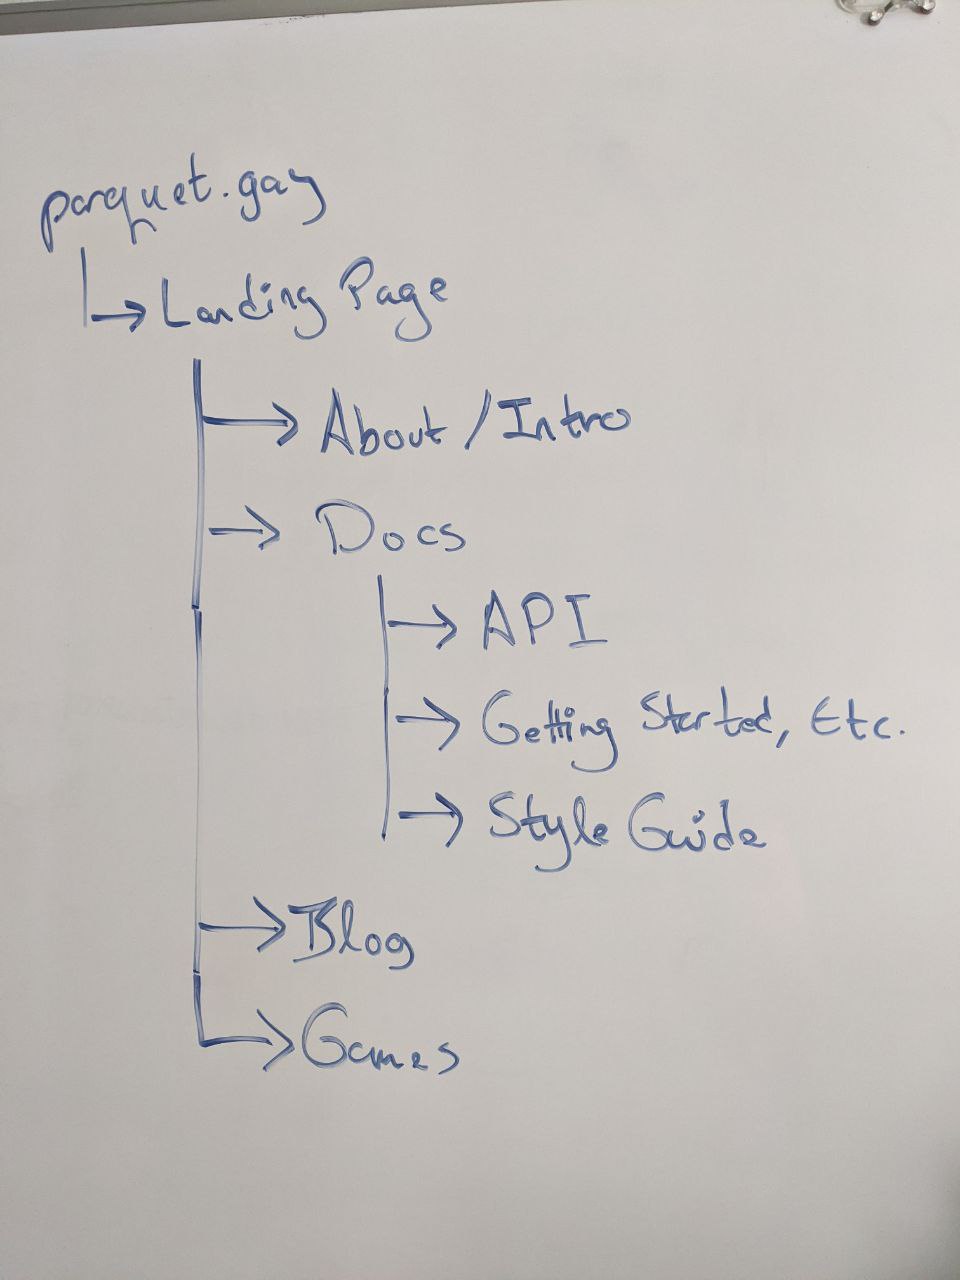 parquet.gay
Landing Page
About / Intro
Docs
API
Getting Started, Etc.
Style Guide
Blog
Games